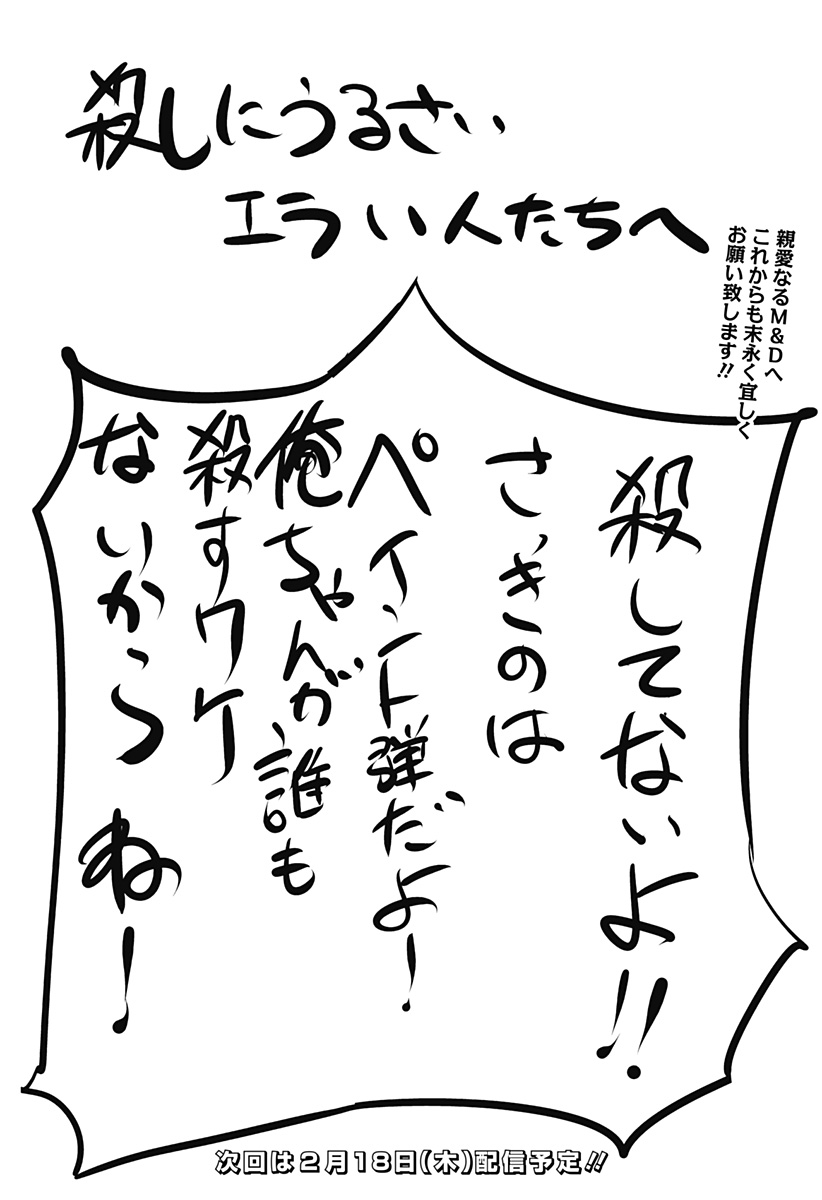 殺しにうるさい
エラい人たちへ
親愛なるM&Dへ
これからも末永く宜しく
お願い致します!!
殺してないよ!!
さっきのは
ペイント弾だよー!
俺ちゃんが誰も
殺すワケ
ないからねー!
次回は2月18日(木)配信予定!!